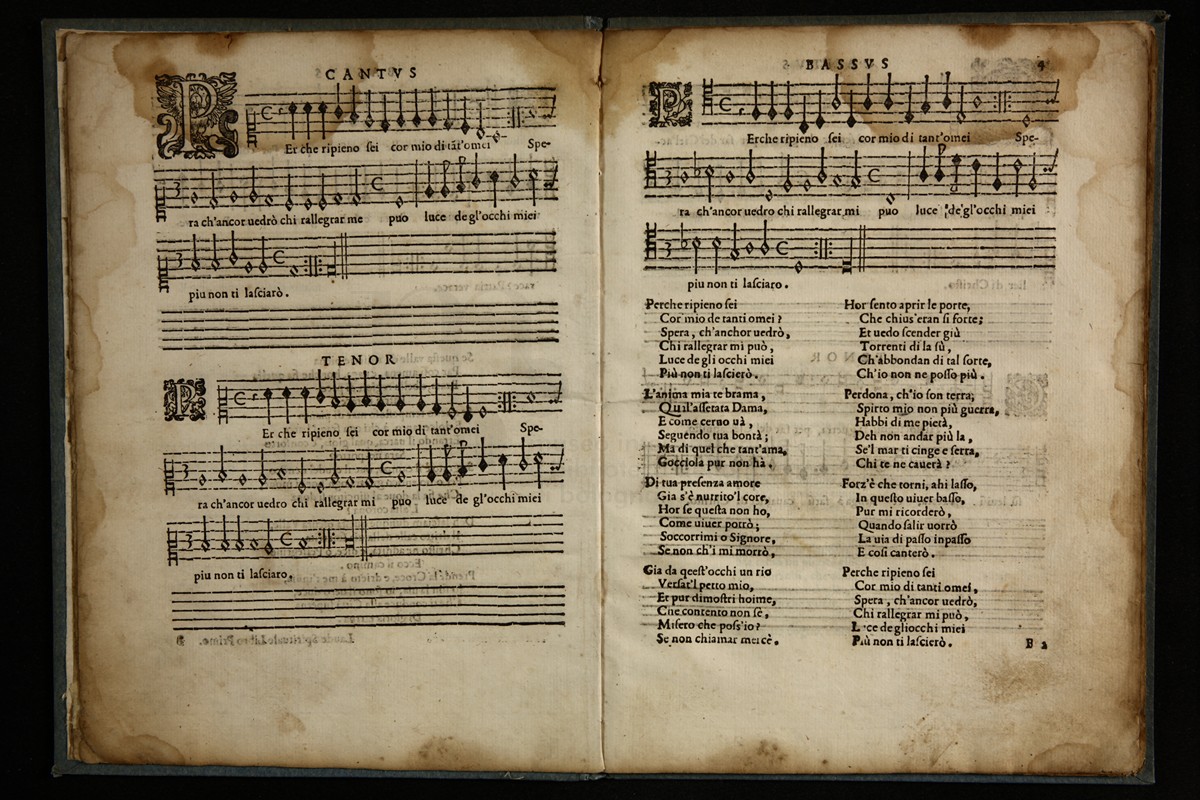 CANTVS
P
Er che ripieno sei cor mio di tāt'omei Spe-
ra ch'ancor uedrò chi rallegrar me puo luce de gl'occhi miei
piu non ti lasciarò.
TENOR
P
Er che ripieno sei cor mio di tant'omei Spe-
ra ch'ancor uedro chi rallegrar mi puo luce de gl'occhi miei
piu non ti lasciaro.
BASSVS 4
P
Erche ripieno sei cor mio di tant'omei Spe-
ra ch'ancor uedro chi rallegrar mi puo luce de gl'occhi miei
piu non ti lasciaro.
Perche ripieno sei
Cor mio de tanti omei?
Spera, ch'anchor uedrò,
Chi rallegrar mi può,
Luce de gli occhi miei
Più non ti lascierò.
L'anima mia te brama,
Qual'assetata Dama,
E come ceruo uà,
Seguendo tua bontà;
Ma di quel che tant'ama,
Gocciola pur non hà.
Di tua presenza amore
Gia s'è nutrito'l core,
Hor se questa non ho,
Come uiuer potrò;
Soccorrimi o Signore,
Se non ch'i mi morrò,
Gia da qeest'occhi un rio
Versat'l petto mio,
Et pur dimostri hoime,
Che contento non sè,
Misero che poss'io?
Se non chiamar mercè.
Hor sento aprir le porte,
Che chius'eran si forte;
Et uedo scender giù
Torrenti di la sù,
Ch'abbondan di tal sorte,
Ch'io non ne posso più.
Perdona, ch'io son terra;
Spirto mio non più guerra,
Habbi di me pietà,
Deh non andar più la,
Se'l mar ti cinge e serra,
Chi te ne cauerà?
Forz'è che torni, ahi lasso,
In questo uiuer basso,
Pur mi ricorderò,
Quando salir uorrò
La uia di passo inpasso
E così canterò.
Perche ripieno sei
Cor mio di tanti omei,
Spera, ch'ancor uedrò,
Chi rallegrar mi può,
Luce degliocchi miei
Più non ti lascierò.
B 2